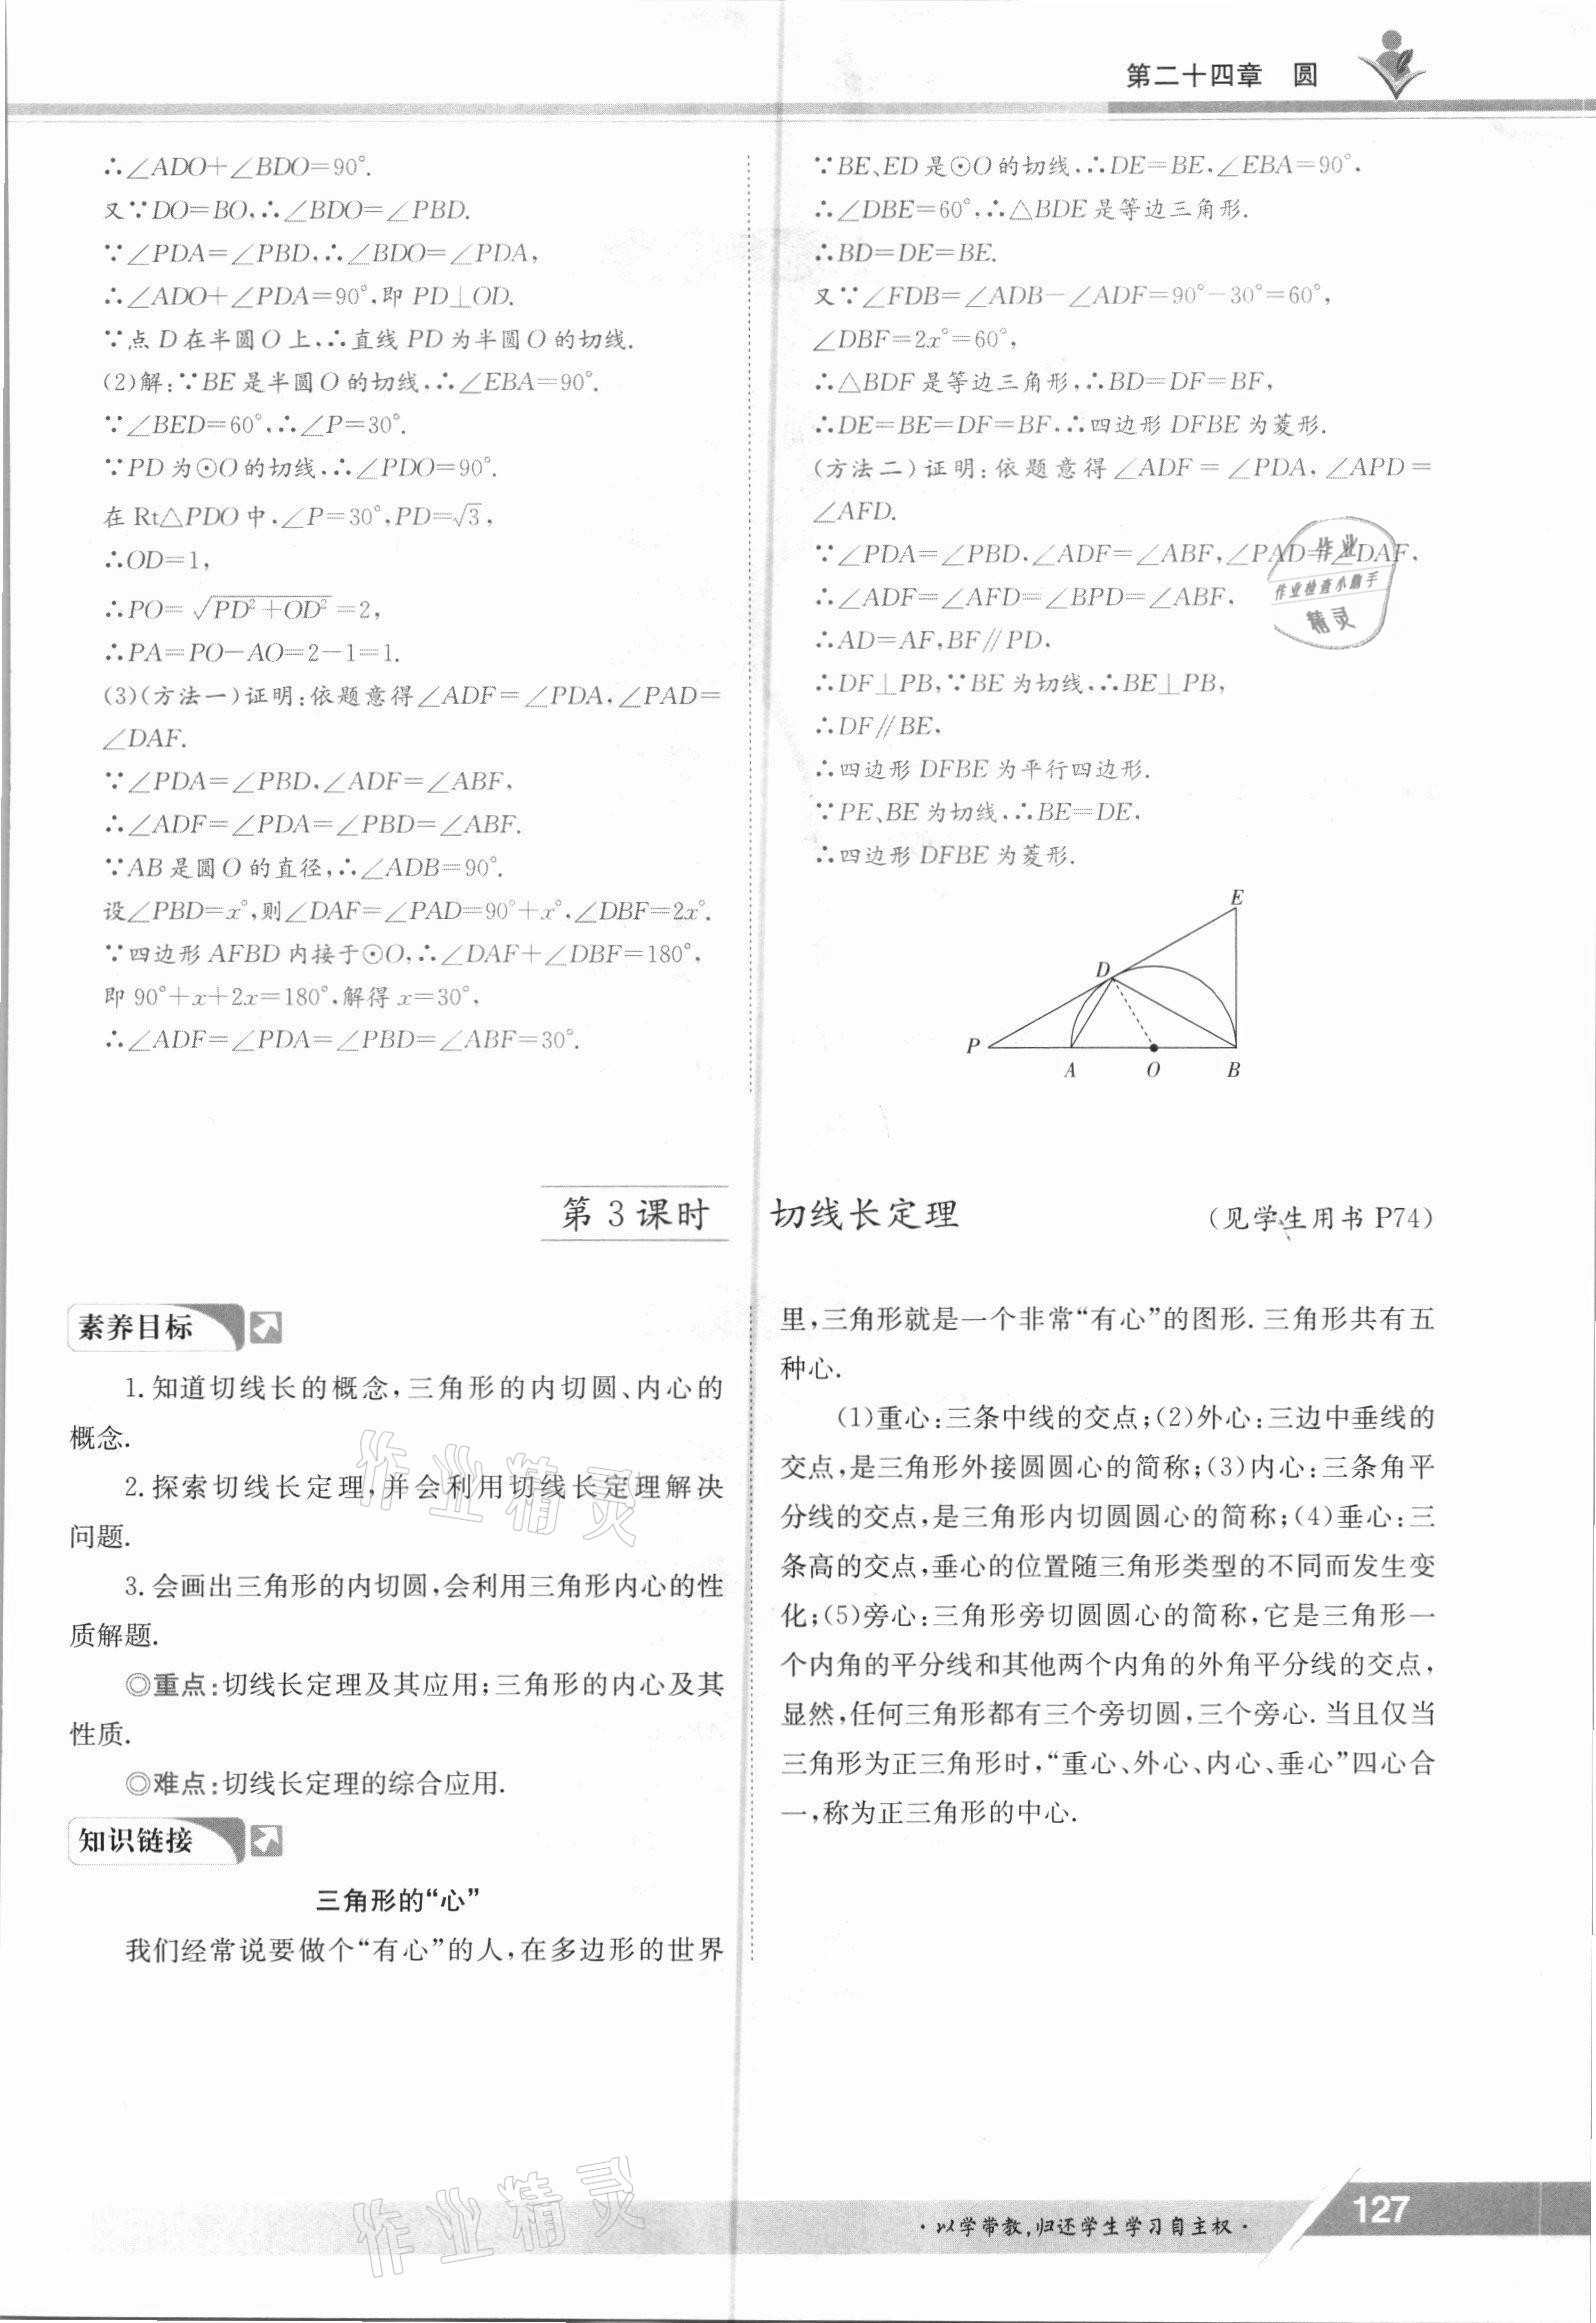 第二十四章　圆
∴∠ADO+∠BDO=90°.
又∵DO=BO,∴∠BDO=∠PBD.
∵∠PDA=∠PBD,∴∠BDO=∠PDA,
∴∠ADO+∠PDA=90°,即 PD⊥OD.
∵点 D 在半圆 O 上,∴直线 PD 为半圆 O 的切线.
(2)解:∵BE 是半圆 O 的切线,∴∠EBA=90°.
∵∠BED=60°,∴∠P=30°.
∵PD 为⊙O 的切线,∴∠PDO=90°.
在 Rt△PDO 中,∠P=30°,PD=√3,
∴OD=1,
∴PO=√(PD²+OD²)=2,
∴PA=PO-AO=2-1=1.
(3)(方法一)证明:依题意得∠ADF=∠PDA,∠PAD=
∠DAF.
∵∠PDA=∠PBD,∠ADF=∠ABF,
∴∠ADF=∠PDA=∠PBD=∠ABF.
∵AB 是圆 O 的直径,∴∠ADB=90°.
设∠PBD=x°,则∠DAF=∠PAD=90°+x°,∠DBF=2x°.
∵四边形 AFBD 内接于⊙O,∴∠DAF+∠DBF=180°,
即 90°+x+2x=180°,解得 x=30°,
∴∠ADF=∠PDA=∠PBD=∠ABF=30°.
∵BE、ED 是⊙O 的切线,∴DE=BE,∠EBA=90°,
∴∠DBE=60°,∴△BDE 是等边三角形.
∴BD=DE=BE.
又∵∠FDB=∠ADB-∠ADF=90°-30°=60°,
∠DBF=2x°=60°,
∴△BDF 是等边三角形,∴BD=DF=BF,
∴DE=BE=DF=BF,∴四边形 DFBE 为菱形.
(方法二)证明:依题意得∠ADF=∠PDA,∠APD=
∠AFD.
∵∠PDA=∠PBD,∠ADF=∠ABF,∠PAD=∠DAF,
∴∠ADF=∠AFD=∠BPD=∠ABF,
∴AD=AF,BF∥PD,
∴DF⊥PB,∵BE 为切线,∴BE⊥PB,
∴DF∥BE,
∴四边形 DFBE 为平行四边形.
∵PE、BE 为切线,∴BE=DE,
∴四边形 DFBE 为菱形.
作业
作业检查小助手
精灵
E
D
P
A O B
第 3 课时　切线长定理　(见学生用书 P74)
素养目标
1. 知道切线长的概念,三角形的内切圆、内心的
概念.
2. 探索切线长定理,并会利用切线长定理解决
问题.
3. 会画出三角形的内切圆,会利用三角形内心的性
质解题.
◎重点:切线长定理及其应用;三角形的内心及其
性质.
◎难点:切线长定理的综合应用.
知识链接
三角形的“心”
我们经常说要做个“有心”的人,在多边形的世界
里,三角形就是一个非常“有心”的图形. 三角形共有五
种心.
(1)重心:三条中线的交点;(2)外心:三边中垂线的
交点,是三角形外接圆圆心的简称;(3)内心:三条角平
分线的交点,是三角形内切圆圆心的简称;(4)垂心:三
条高的交点,垂心的位置随三角形类型的不同而发生变
化;(5)旁心:三角形旁切圆圆心的简称,它是三角形一
个内角的平分线和其他两个内角的外角平分线的交点,
显然,任何三角形都有三个旁切圆,三个旁心. 当且仅当
三角形为正三角形时,“重心、外心、内心、垂心”四心合
一,称为正三角形的中心.
作业精灵
作业精灵
·以学带教,归还学生学习自主权·
127